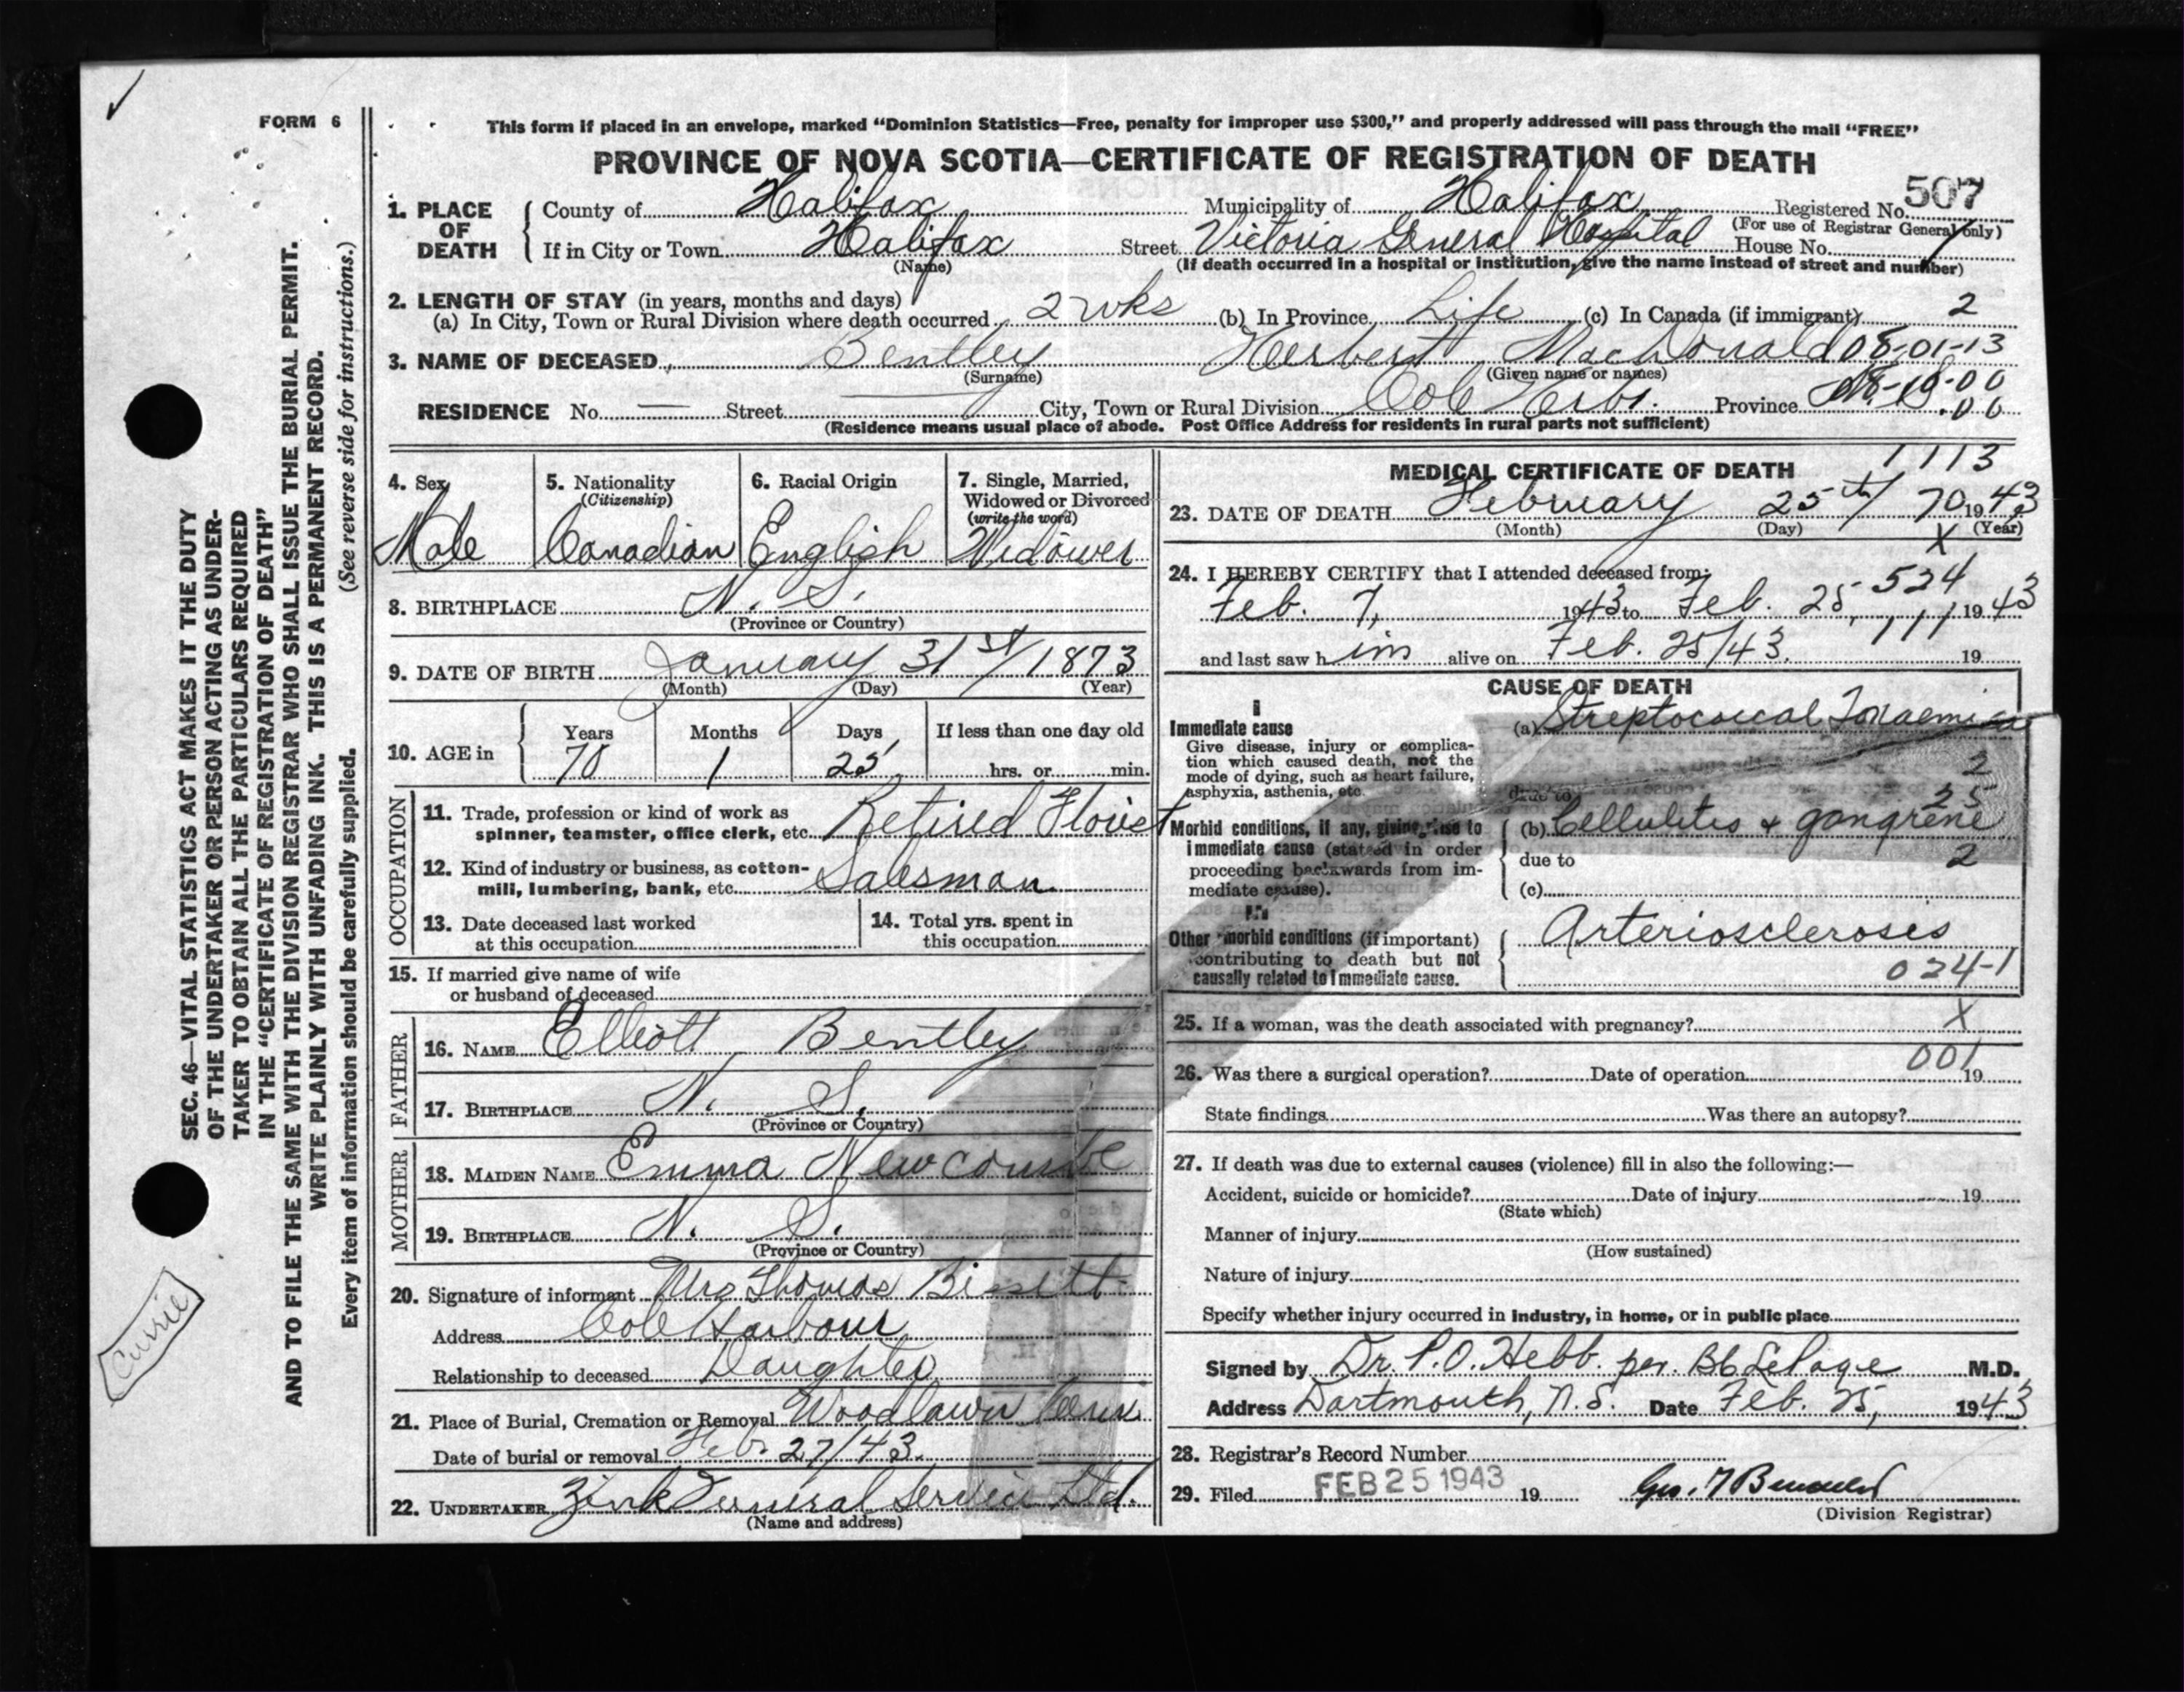 FORM 6
This form if placed in an envelope, marked "Dominion Statistics—Free, penalty for improper use $300," and properly addressed will pass through the mail "FREE"
PROVINCE OF NOVA SCOTIA—CERTIFICATE OF REGISTRATION OF DEATH
1. PLACE OF DEATH
County of Halifax Municipality of Halifax Registered No. 507
(For use of Registrar General only)
If in City or Town Halifax Street Victoria General Hospital House No.
(Name) (If death occurred in a hospital or institution, give the name instead of street and number)
2. LENGTH OF STAY (in years, months and days)
(a) In City, Town or Rural Division where death occurred 2 wks (b) In Province Life (c) In Canada (if immigrant) 2
3. NAME OF DECEASED Bentley Herbert MacDonald 08-01-13
(Surname) (Given name or names)
RESIDENCE No. — Street — City, Town or Rural Division Cole Hrbr. Province
(Residence means usual place of abode. Post Office Address for residents in rural parts not sufficient)
4. Sex Male
5. Nationality (Citizenship) Canadian
6. Racial Origin English
7. Single, Married, Widowed or Divorced (write the word) Widower
8. BIRTHPLACE N. S.
(Province or Country)
9. DATE OF BIRTH January 31st/1873
(Month) (Day) (Year)
10. AGE in Years Months Days If less than one day old
70 1 25 hrs. or min.
OCCUPATION
11. Trade, profession or kind of work as spinner, teamster, office clerk, etc. Retired Florist
12. Kind of industry or business, as cotton-mill, lumbering, bank, etc. Salesman
13. Date deceased last worked at this occupation
14. Total yrs. spent in this occupation
15. If married give name of wife or husband of deceased
FATHER
16. NAME Elliott Bentley
17. BIRTHPLACE N. S.
(Province or Country)
MOTHER
18. MAIDEN NAME Emma Newcombe
19. BIRTHPLACE N. S.
(Province or Country)
20. Signature of informant Mrs Thomas Bissett
Address Cole Harbour
Relationship to deceased Daughter
21. Place of Burial, Cremation or Removal Woodlawn Cem
Date of burial or removal Feb. 27/43.
22. UNDERTAKER Zink Funeral Service Ltd.
(Name and address)
1113
MEDICAL CERTIFICATE OF DEATH
23. DATE OF DEATH February 25th/ 70 1943
(Month) (Day) (Year)
X
24. I HEREBY CERTIFY that I attended deceased from: 524
Feb. 7, 1943 to Feb. 25, 1943
111
and last saw him alive on Feb. 25/43. 19
CAUSE OF DEATH
I
Immediate cause
Give disease, injury or complication which caused death, not the mode of dying, such as heart failure, asphyxia, asthenia, etc.
(a) Streptococcal Toxaemia
2
due to
25
Morbid conditions, if any, giving rise to immediate cause (stated in order proceeding backwards from immediate cause).
(b) Cellulitis + gangrene
due to 2
(c)
Other morbid conditions (if important) contributing to death but not causally related to immediate cause.
Arteriosclerosis
024-1
25. If a woman, was the death associated with pregnancy? X
001
26. Was there a surgical operation? Date of operation 19
State findings Was there an autopsy?
27. If death was due to external causes (violence) fill in also the following:—
Accident, suicide or homicide? Date of injury 19
(State which)
Manner of injury
(How sustained)
Nature of injury
Specify whether injury occurred in industry, in home, or in public place
Signed by Dr. P.O. Hebb. per. BC LePage M.D.
Address Dartmouth, N.S. Date Feb. 25, 1943
28. Registrar's Record Number
29. Filed FEB 25 1943 19
(Division Registrar)
SEC. 46—VITAL STATISTICS ACT MAKES IT THE DUTY
OF THE UNDERTAKER OR PERSON ACTING AS UNDER-
TAKER TO OBTAIN ALL THE PARTICULARS REQUIRED
IN THE "CERTIFICATE OF REGISTRATION OF DEATH"
AND TO FILE THE SAME WITH THE DIVISION REGISTRAR WHO SHALL ISSUE THE BURIAL PERMIT.
WRITE PLAINLY WITH UNFADING INK. THIS IS A PERMANENT RECORD.
Every item of information should be carefully supplied. (See reverse side for instructions.)
Currie